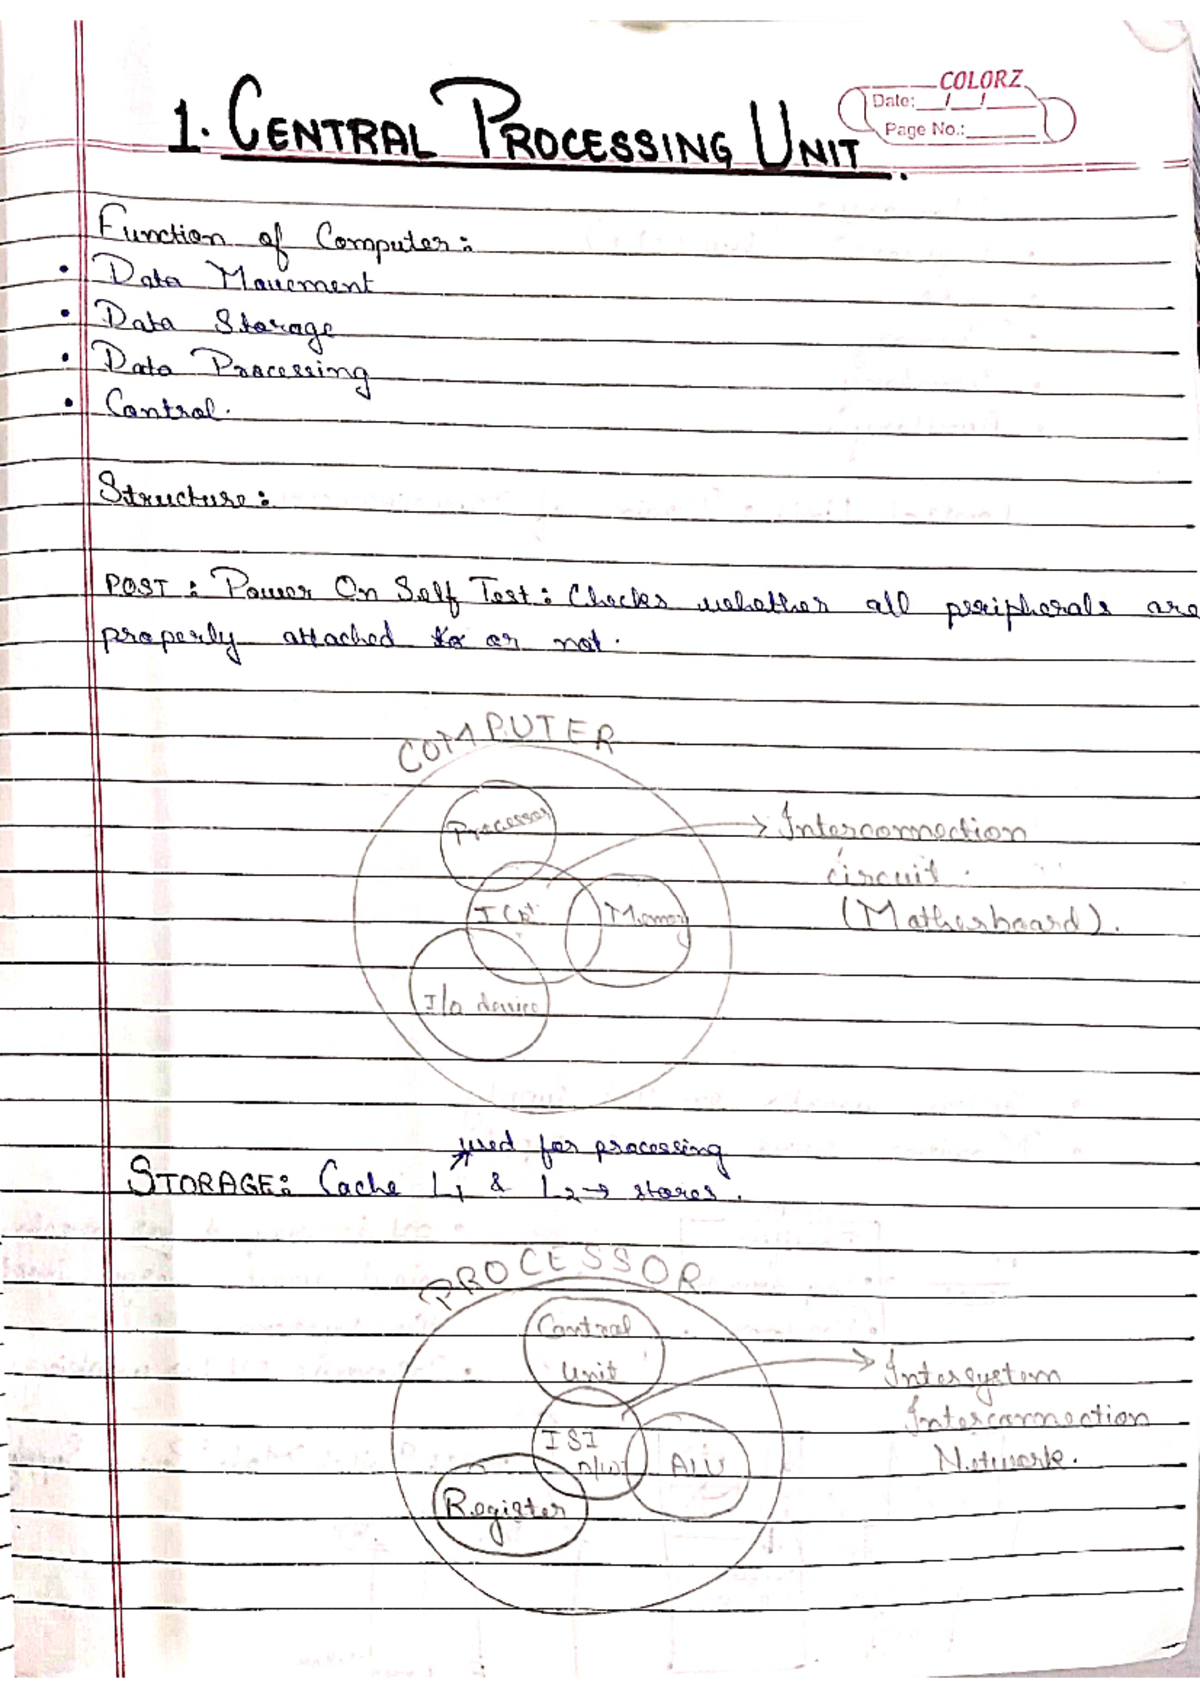 COLORZ
Date: / /
Page No.:
1. CENTRAL PROCESSING UNIT.
Function of Computer:
• Data Movement
• Data Storage
• Data Processing
• Control.
Structure:
POST: Power On Self Test: Checks whether all peripherals are
properly attached or not.
COMPUTER
Processor
→ Interconnection
circuit.
(Motherboard).
I Ckt
Memory
I/o device
used for processing
STORAGE: Cache L1 & L2 → stores.
PROCESSOR
Control
Unit
→ Intersystem
Interconnection
Network.
ISI
n/w
ALU
Register